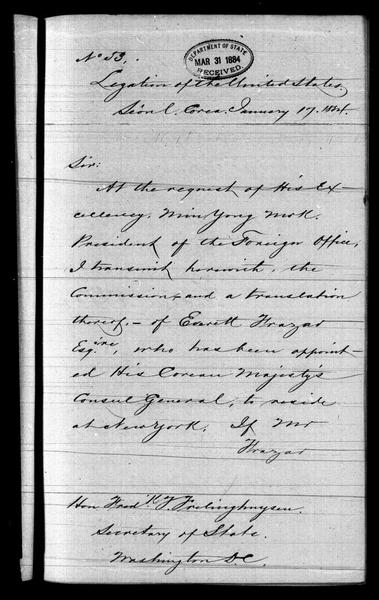 No 53.
DEPARTMENT OF STATE
MAR 31 1884
RECEIVED.
Legation of the United States,
Séoul, Corea, January 17, 1884.
Sir:
At the request of His Ex
cellency, Min Yong Mok,
President of the Foreign Office,
I transmit herewith, the
Commission,-and a translation
thereof,- of Everett Frazar
Esqire, who has been appoint-
ed His Corean Majesty's
Consul General, to reside
at New York. If Mr
Frazar
Hon Fredk T. Frelinghuysen.
Secretary of State.
Washington D.C.